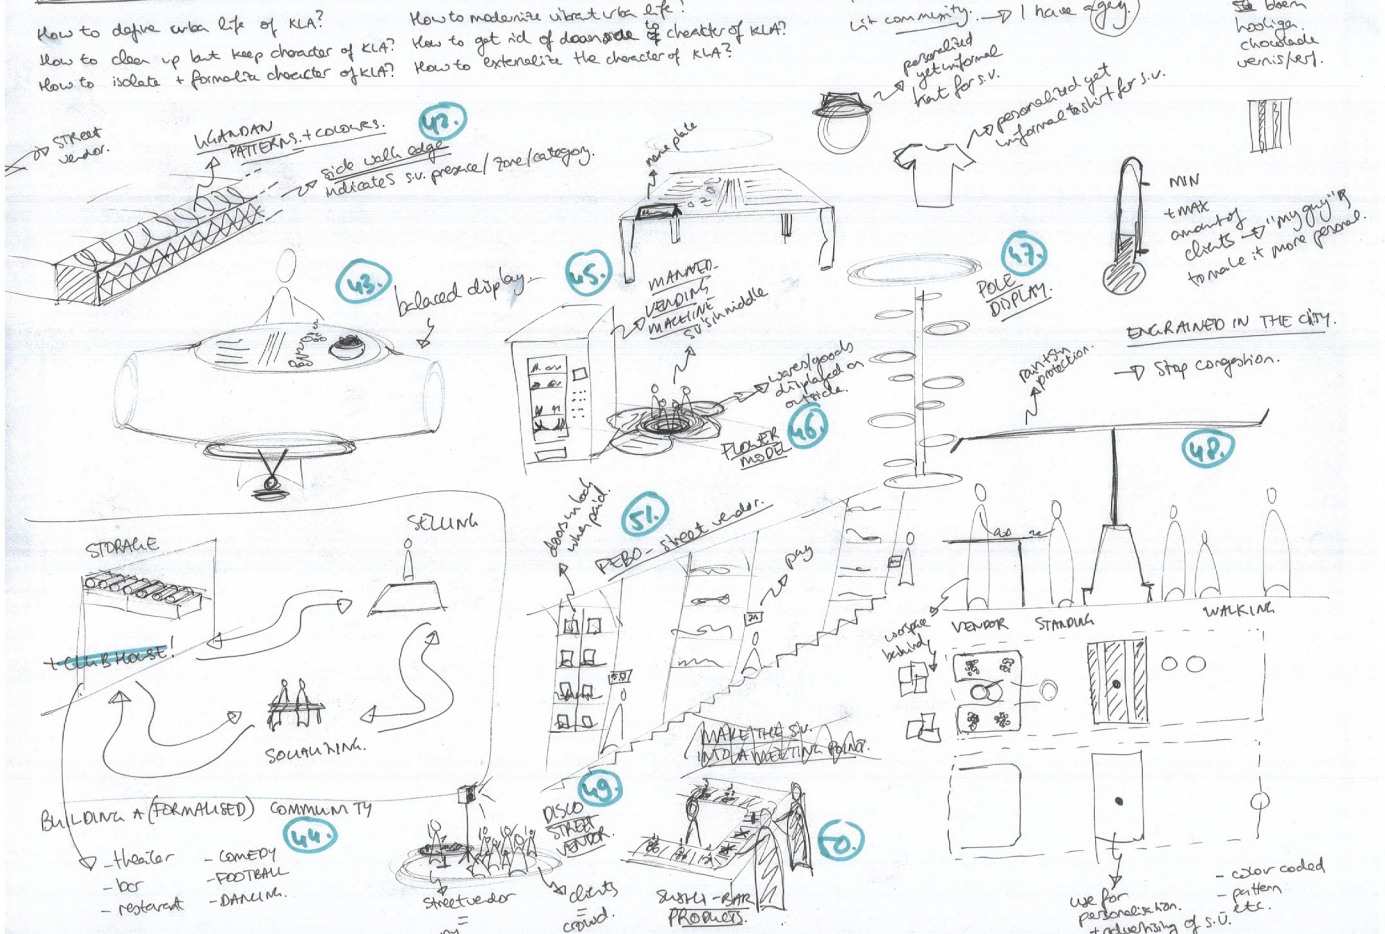 How to define urban life of KLA?
How to clean up but keep character of KLA?
How to isolate + formalize character of KLA?
How to modernize vibrant urban life?
How to get rid of downside of character of KLA?
How to externalize the character of KLA?
Lit community. → I have a guy.
hooligan
chocolade
vernis/verf.
STREET
vendor.
UGANDAN
PATTERNS + COLOURS.
42.
side walk edge
indicates s.v. presence/zone/category.
name plate
personalized
yet informal
hat for s.v.
personalized yet
informal tashirt for s.v.
MIN
+ MAX
amount of
clients → "my guy"
to make it more personal.
43.
balaced display
45.
MANNED
VENDING
MACHINE
SV's in middle
wares/goods
displayed on
outside.
46.
FLOWER
MODEL
47.
POLE
DISPLAY.
ENGRAINED IN THE CITY.
→ Stop congestion.
rain/sun
protection.
48.
STORAGE
SELLING
+ CLUBHOUSE!
SOCIALIZING.
BUILDING A (FORMALISED) COMMUNITY
44.
- theater
- bar
- restaurant
- COMEDY
- FOOTBALL
- DANCING.
doors unlock
when paid.
51.
FEBO - street vendor.
pay
MAKE THE S.V.
INTO A MEETING POINT.
49.
DISCO
STREET
VENDOR.
street vendor
=
clients
=
crowd.
50.
SUSHI-BAR
PRODUCTS.
VENDOR
STANDING
WALKING
use for
personalisation.
+ advertising of s.v.
- color coded
- pattern
etc.